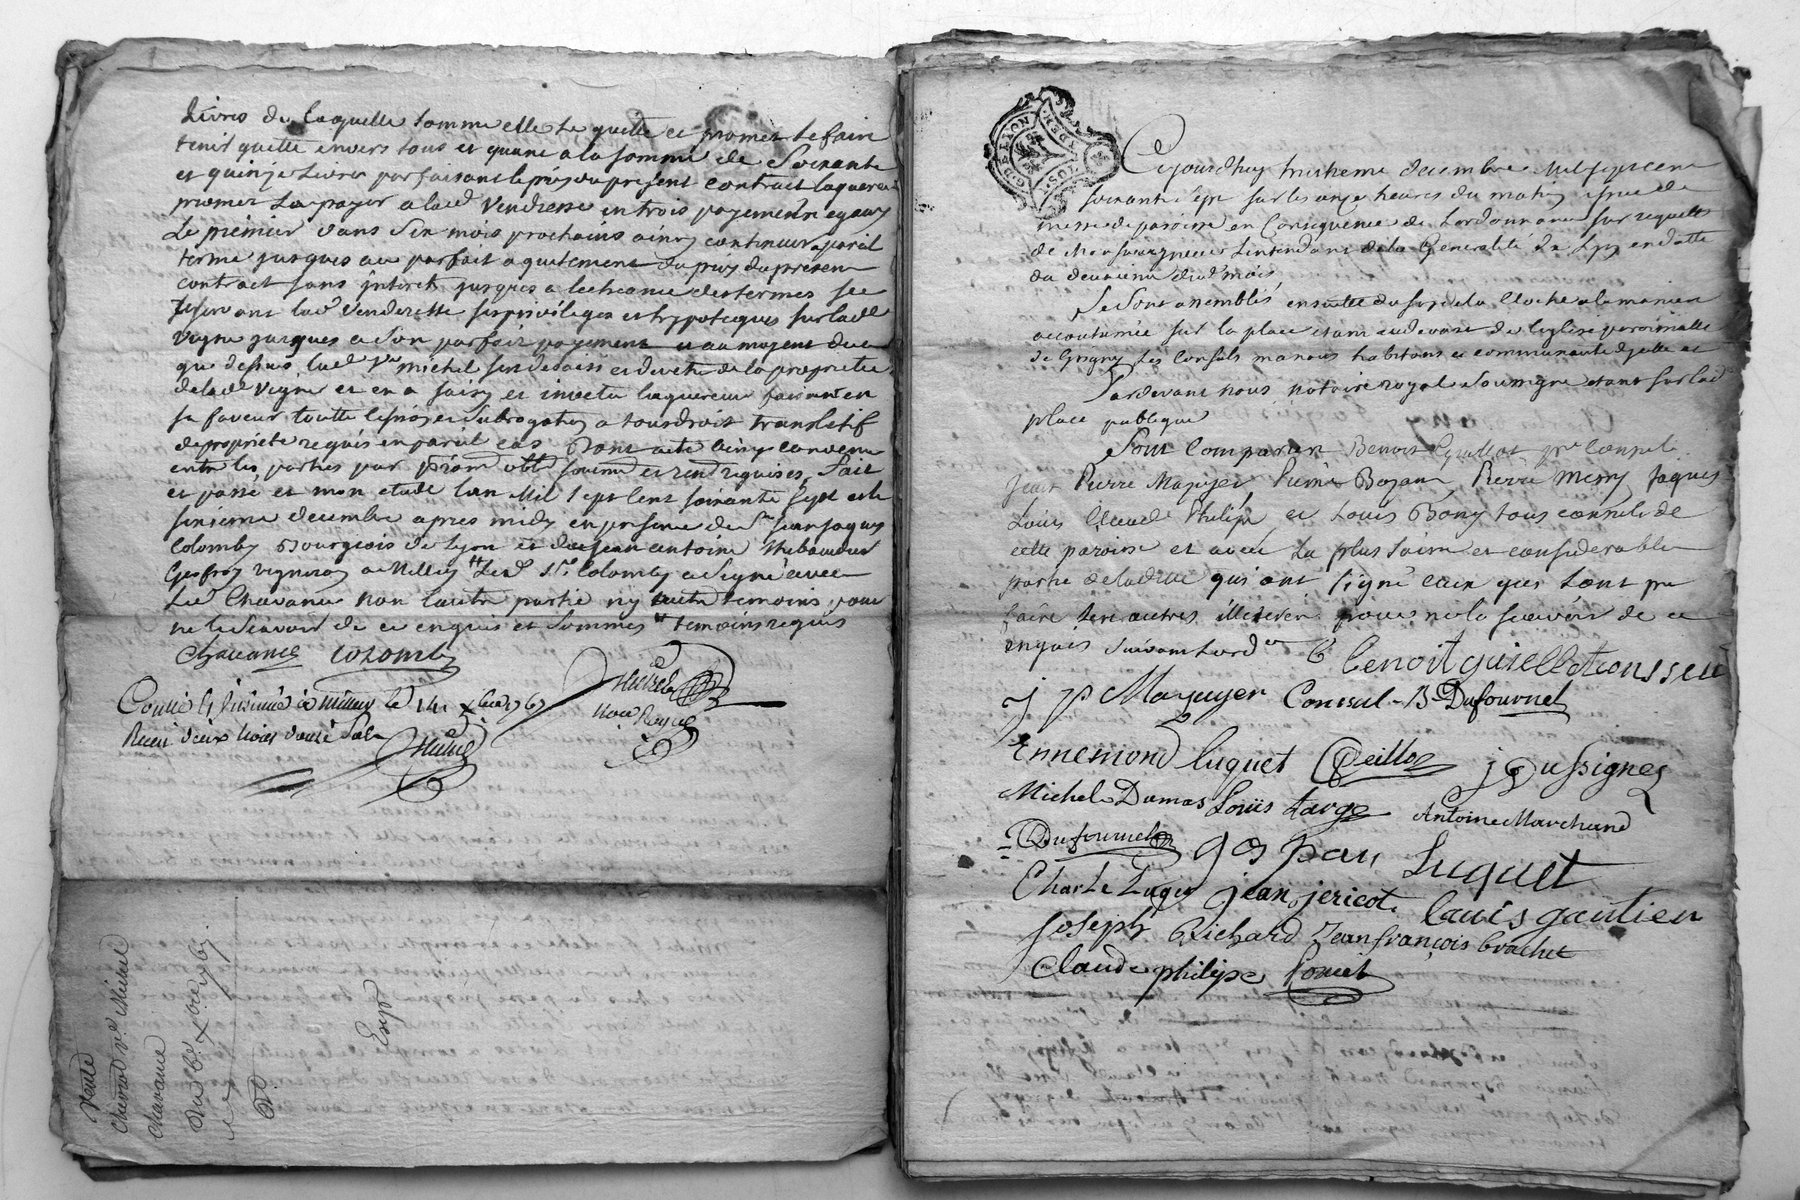 Livres de laquelle somme elle le quitte et promet le faire
tenir quitte envers tous et quant a la somme de Soixante
et quinze Livres parfaisant le prix du présent contract laquereur
promet La payer a lad. Venderesse en trois payements egaux
Le premier dans Six mois prochains ainsy continuer a pareil
terme jusques au parfait aquitement du prix du présent
contract sans interet jusques a lecheance des termes se
reservant lad. Venderesse ses privileges et hypoteques sur lad.
Vigne jusques a Son parfait payement et au moyent de ce
que dessus, lad. Ve. michel sen dessaisi et devetu de la proprieté
de lad. Vigne et en a saisy et investu laquereur faisant en
sa faveur toutte subrogation a tous droit translatif
de proprieté requis en pareil cas Dont acte ainsy convenu
entre les parties par prom. obl. soum. et ren. requises, fait
et passé et mon etude Lan Mil Sept Cent Soixante Sept et le
sixieme decembre apres midy en presence de Sr. jean jaques
Colomby Bourgeois de Lyon et de jean antoine
Geofroy vigneron a Millery Led. Sr. Colomby a Signé avec
Led. Chavance non lautre partie ny autre temoins pour
ne le Scavoir de ce enquis et Sommés temoins requis
Chavance Colomby
Conllé & insinué a Millery le 14 xbre 1767
Receu deux livres
Nore Royal
Vente
Ve. Michel
Chavance
Du 6e. xbre 1767
Exp
G. D. LYON
Cejourdhuy treizieme decembre Mil sept cent
soixante sept sur les onze heures du matin issue de
messe de paroisse en Consequence de Lordonnance sur requette
de Monseigneur Lintendant de la Generalité de Lyon en datte
du deuxieme dud. mois
Se Sont assemblés ensuitte du son de la Cloche a la maniere
accoutumée sur la place etant audevant de leglise paroissialle
de Grigny Les Consuls manants habitans et communauté dycelle et
Pardevant nous notaire royal Soussigné etant sur lad.
place publique
Sont Comparus Benoit Guillot pr. Consul
Jean Pierre Mazuyer Pierre Pierre Jaques
Louis Claude Philipe et Louis Bony tous consuls de
cette paroisse et avec La plus Saine et considerable
partie dicelle qui ont signé ceux qui Lont pu
faire Les autres illeteré pour ne le scavoir de ce
enquis Suivant Lord.ce
Benoit guiellot
j p Mazuyer Consul B Dufournel
Ennemond luquet j Dussigne
Michel Dumas Loüis targe Antoine Marchand
Dufournel gaspar Luquet
Charle jean jericot Louis gautier
Joseph Richard Jean françois brachet
Claude philipe